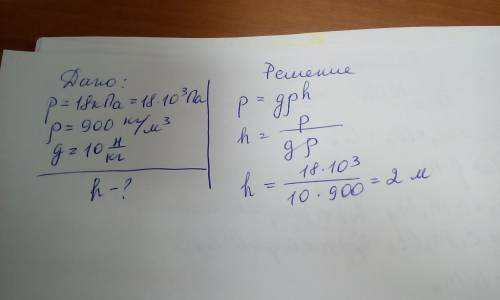 Дано:
p = 18кПа = 18·10³Па
ρ = 900 кг/м³
g = 10 Н/кг
h - ?
Решение
p = gρh
h = p / gρ
h = 18·10³ / 10·900 = 2 м